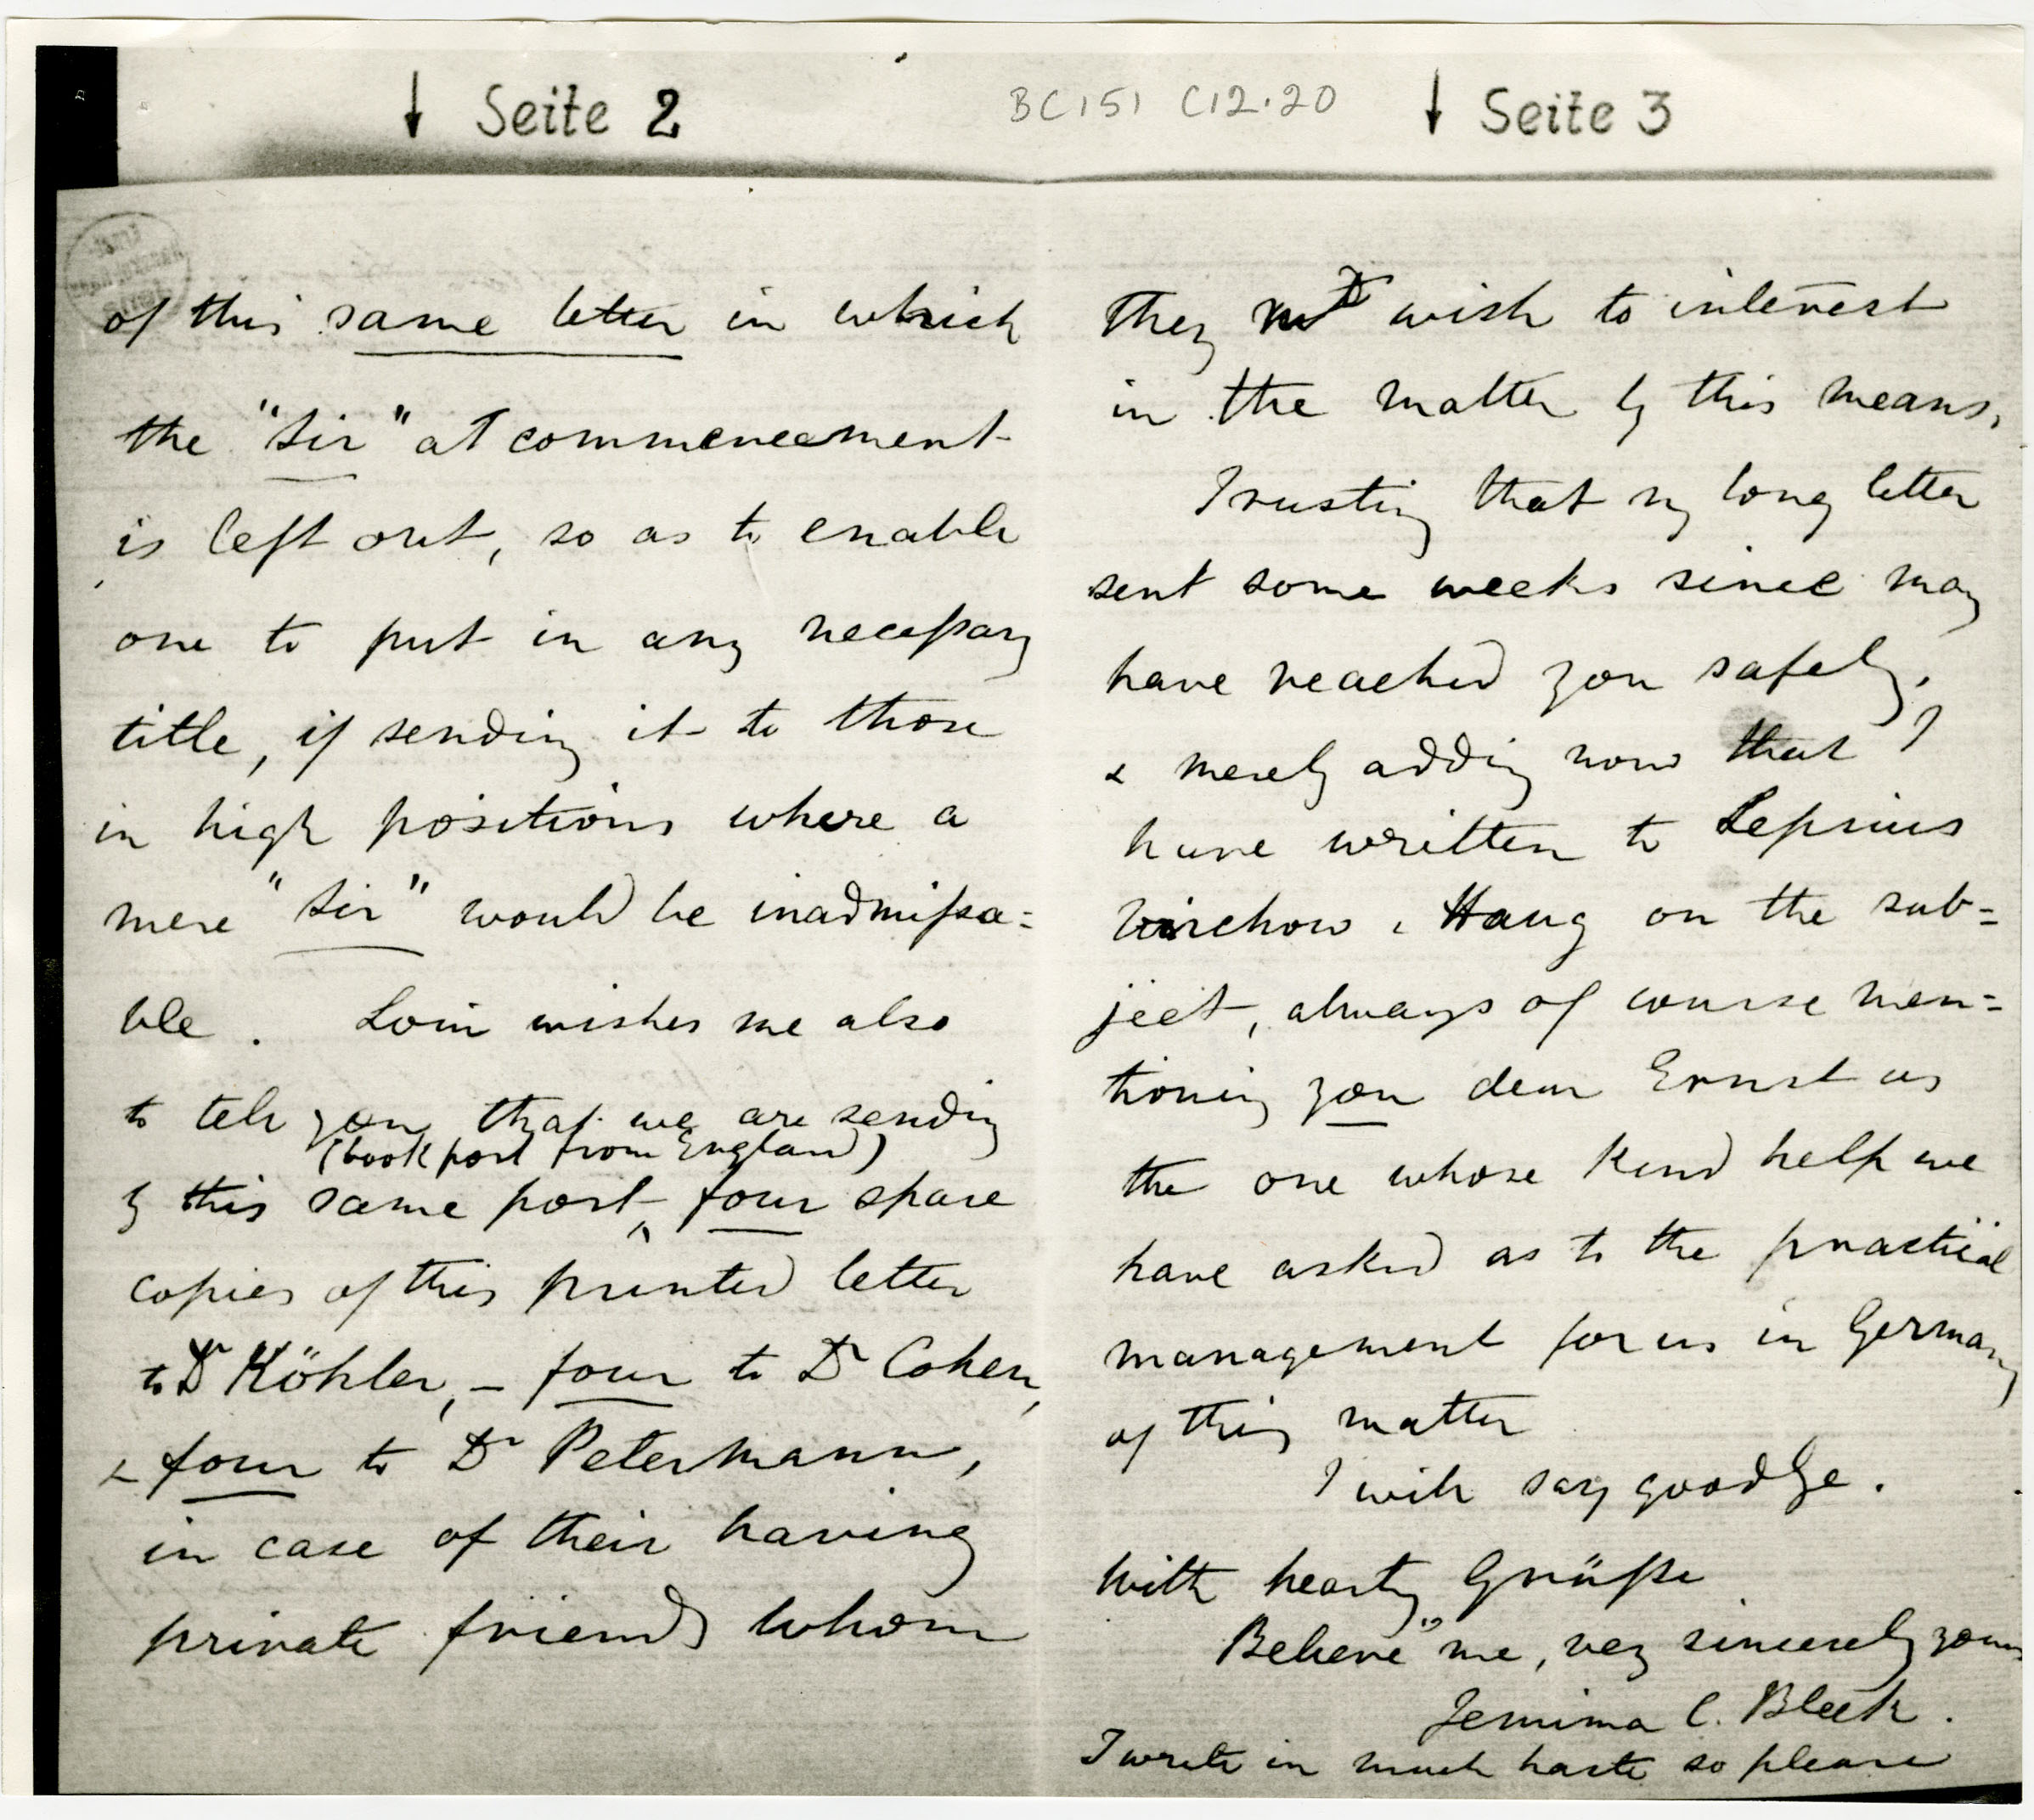 ↓ Seite 2
BC151 C12.20
↓ Seite 3
of this same letter in which
the "Sir" at commencement
is left out, so as to enable
one to put in any necessary
title, if sending it to those
in high positions where a
mere "Sir" would be inadmissa=
ble. Loui wishes me also
to tell you that we are sending
(book post from England)
by this same post ^ four spare
copies of this printed letter
to Dr Köhler, – four to Dr Cohen,
& four to Dr Petermann,
in case of their having
private friends whom
They md wish to interest
in the matter by this means.
Trusting that my long letter
sent some weeks since may
have reached you safely,
& merely adding now that I
have written to Lepsius
Virchow & Haug on the sub=
ject, always of course men=
tioning you dear Ernst as
the one whose kind help we
have asked as to the practical
management for us in Germany
of this matter
I will say goodbye.
With hearty Grüße
Believe me, very sincerely yours
Jemima C. Bleek.
I write in much haste so please